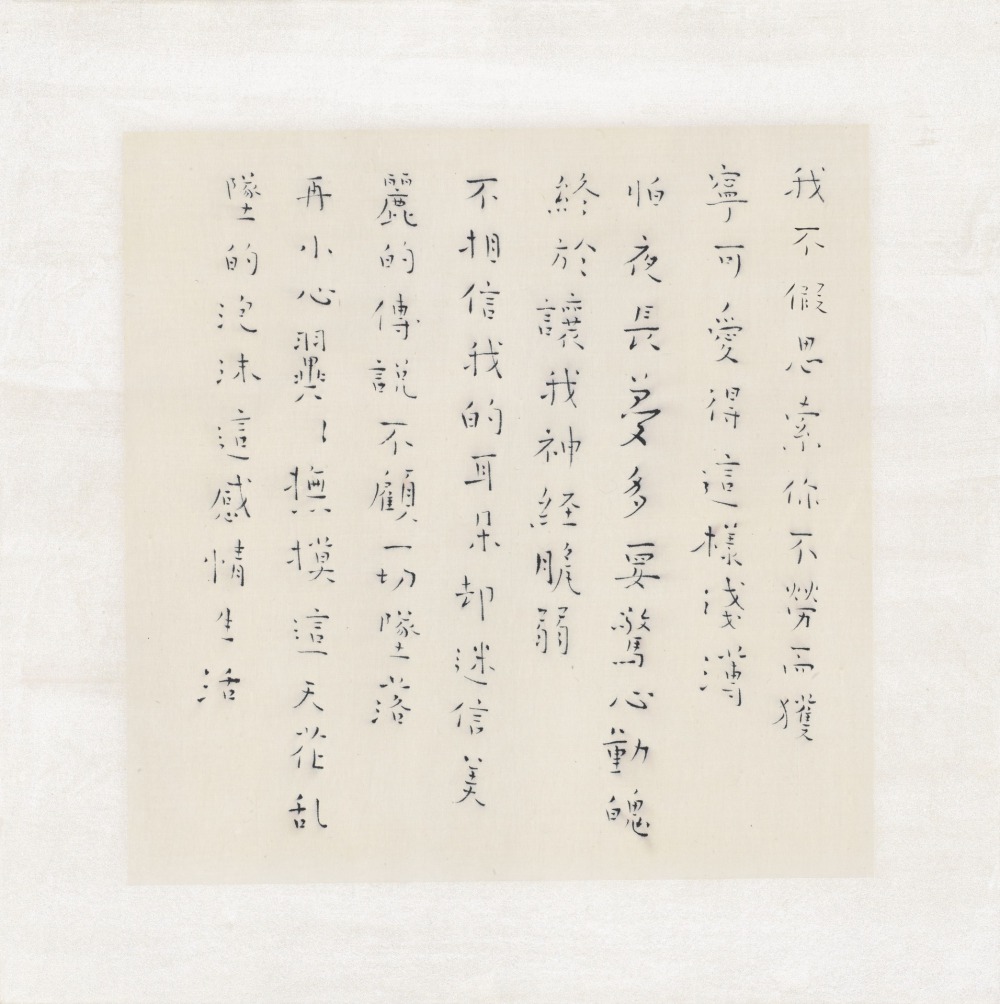 我不假思索你不勞而獲
寧可愛得這樣淺薄
怕夜長夢多要驚心動魄
終於讓我神経脆弱
不相信我的耳朵却迷信美
麗的傳説不顧一切墜落
再小心翼〻撫摸這天花乱
墜的泡沫這感情生活